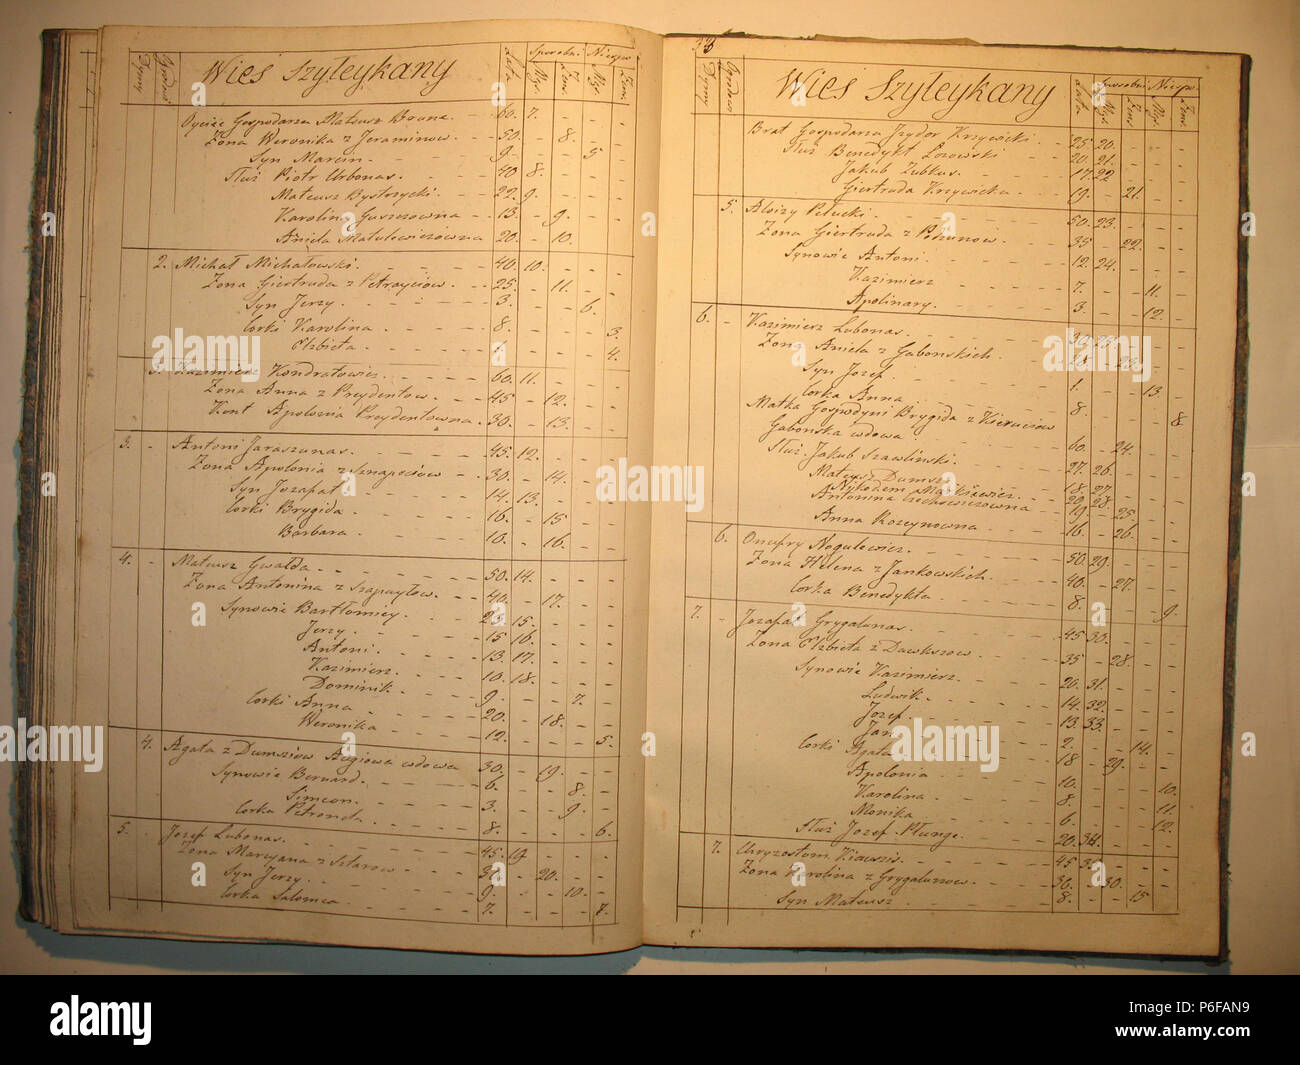 Wies Szyleykany
Dymy Lata Sposobni Niespo
Oyciec Gospodarza Mateusz 60. 7.
Żona Weronika z 50. 8.
Syn Marcin 9. 5
Służ Piotr Urbonas 40 8.
Mateusz Bystrzycki 22. 9.
Karolina 13. 9.
Aniela Matulewiczowna 20. 10.
2. Michał Michałowski 40. 10.
Żona Giertruda z 25. 11.
Syn Jerzy 3. 6.
Corki Karolina 8. 3.
Elżbieta 1. 4.
3. Kazimierz Kondratowicz 60. 11.
Żona Anna z Preydentow 45 12.
Apolonia Preydentowna 30. 13.
3. Antoni Jaraszunas 45. 12.
Żona Apolonia z 30. 14.
Syn Jozafat 14. 13.
Corki Brygida 16. 15
Barbara 10. 16.
4. Mateusz Gwałda 50. 14.
Żona Antonina z 40. 17.
Synowie Bartłomiey 25 15.
Jerzy 15 16.
Antoni 13. 17.
Kazimierz 10. 18.
Dominik 9. 7.
Corki Anna 20. 18.
Weronika 12. 5.
4. Agata z wdowa 30. 19.
Synowie Bernard 6. 8.
Simeon 3. 9.
Corka Petronela 8. 6.
5. Jozef Lubonas 45. 19
Żona Maryana z 20.
Syn Jerzy 9. 10.
Corka Salomea 7. 7.
Wies Szyleykany
Dymy Lata Sposobni Niespo
Brat Gospodarza Jzydor Krzywicki 25. 20.
Służ Benedykt 20. 21.
Jakub Zubkus 17. 22
Giertruda Krzywicka 19. 21.
5. Aloizy Pilucki 50. 23.
Żona Giertruda z 35 22.
Synowie Antoni 12. 24.
Kazimierz 7. 11.
Apolinary 3. 12.
6. Kazimierz Lubonas 30. 25.
Żona Aniela z Gabonskich 23.
Syn Jozef 1. 13.
Corka Anna 8. 8
Matka Gospodyni Brygida z
Gabonska wdowa 60. 24.
Służ. Jakub Szawlinski 27. 26.
Mateusz 18. 27.
Nikodem 20. 28.
Antonina 19. 25.
Anna 16. 26.
6. Onufry Nogulewicz 50. 29.
Żona Helena z Jankowskich 40. 27.
Corka Benedykta 8. 9.
7. Jozafat Grygalunas 45 30.
Żona Elżbieta z 35 28.
Synowie Kazimierz 20. 31.
Ludwik 14. 32.
Jozef 13. 33.
Jan 2. 14.
Corki Agata 18 29.
Apolonia 10. 10.
Karolina 8. 11.
Monika 6. 12.
Służ Jozef Plunge 20. 34.
7. Chryzostom 45 35.
Żona Karolina z Grygalunow 30. 30.
Syn Mateusz 8. 15
alamy
a
Image ID: P6FAN9
www.alamy.com